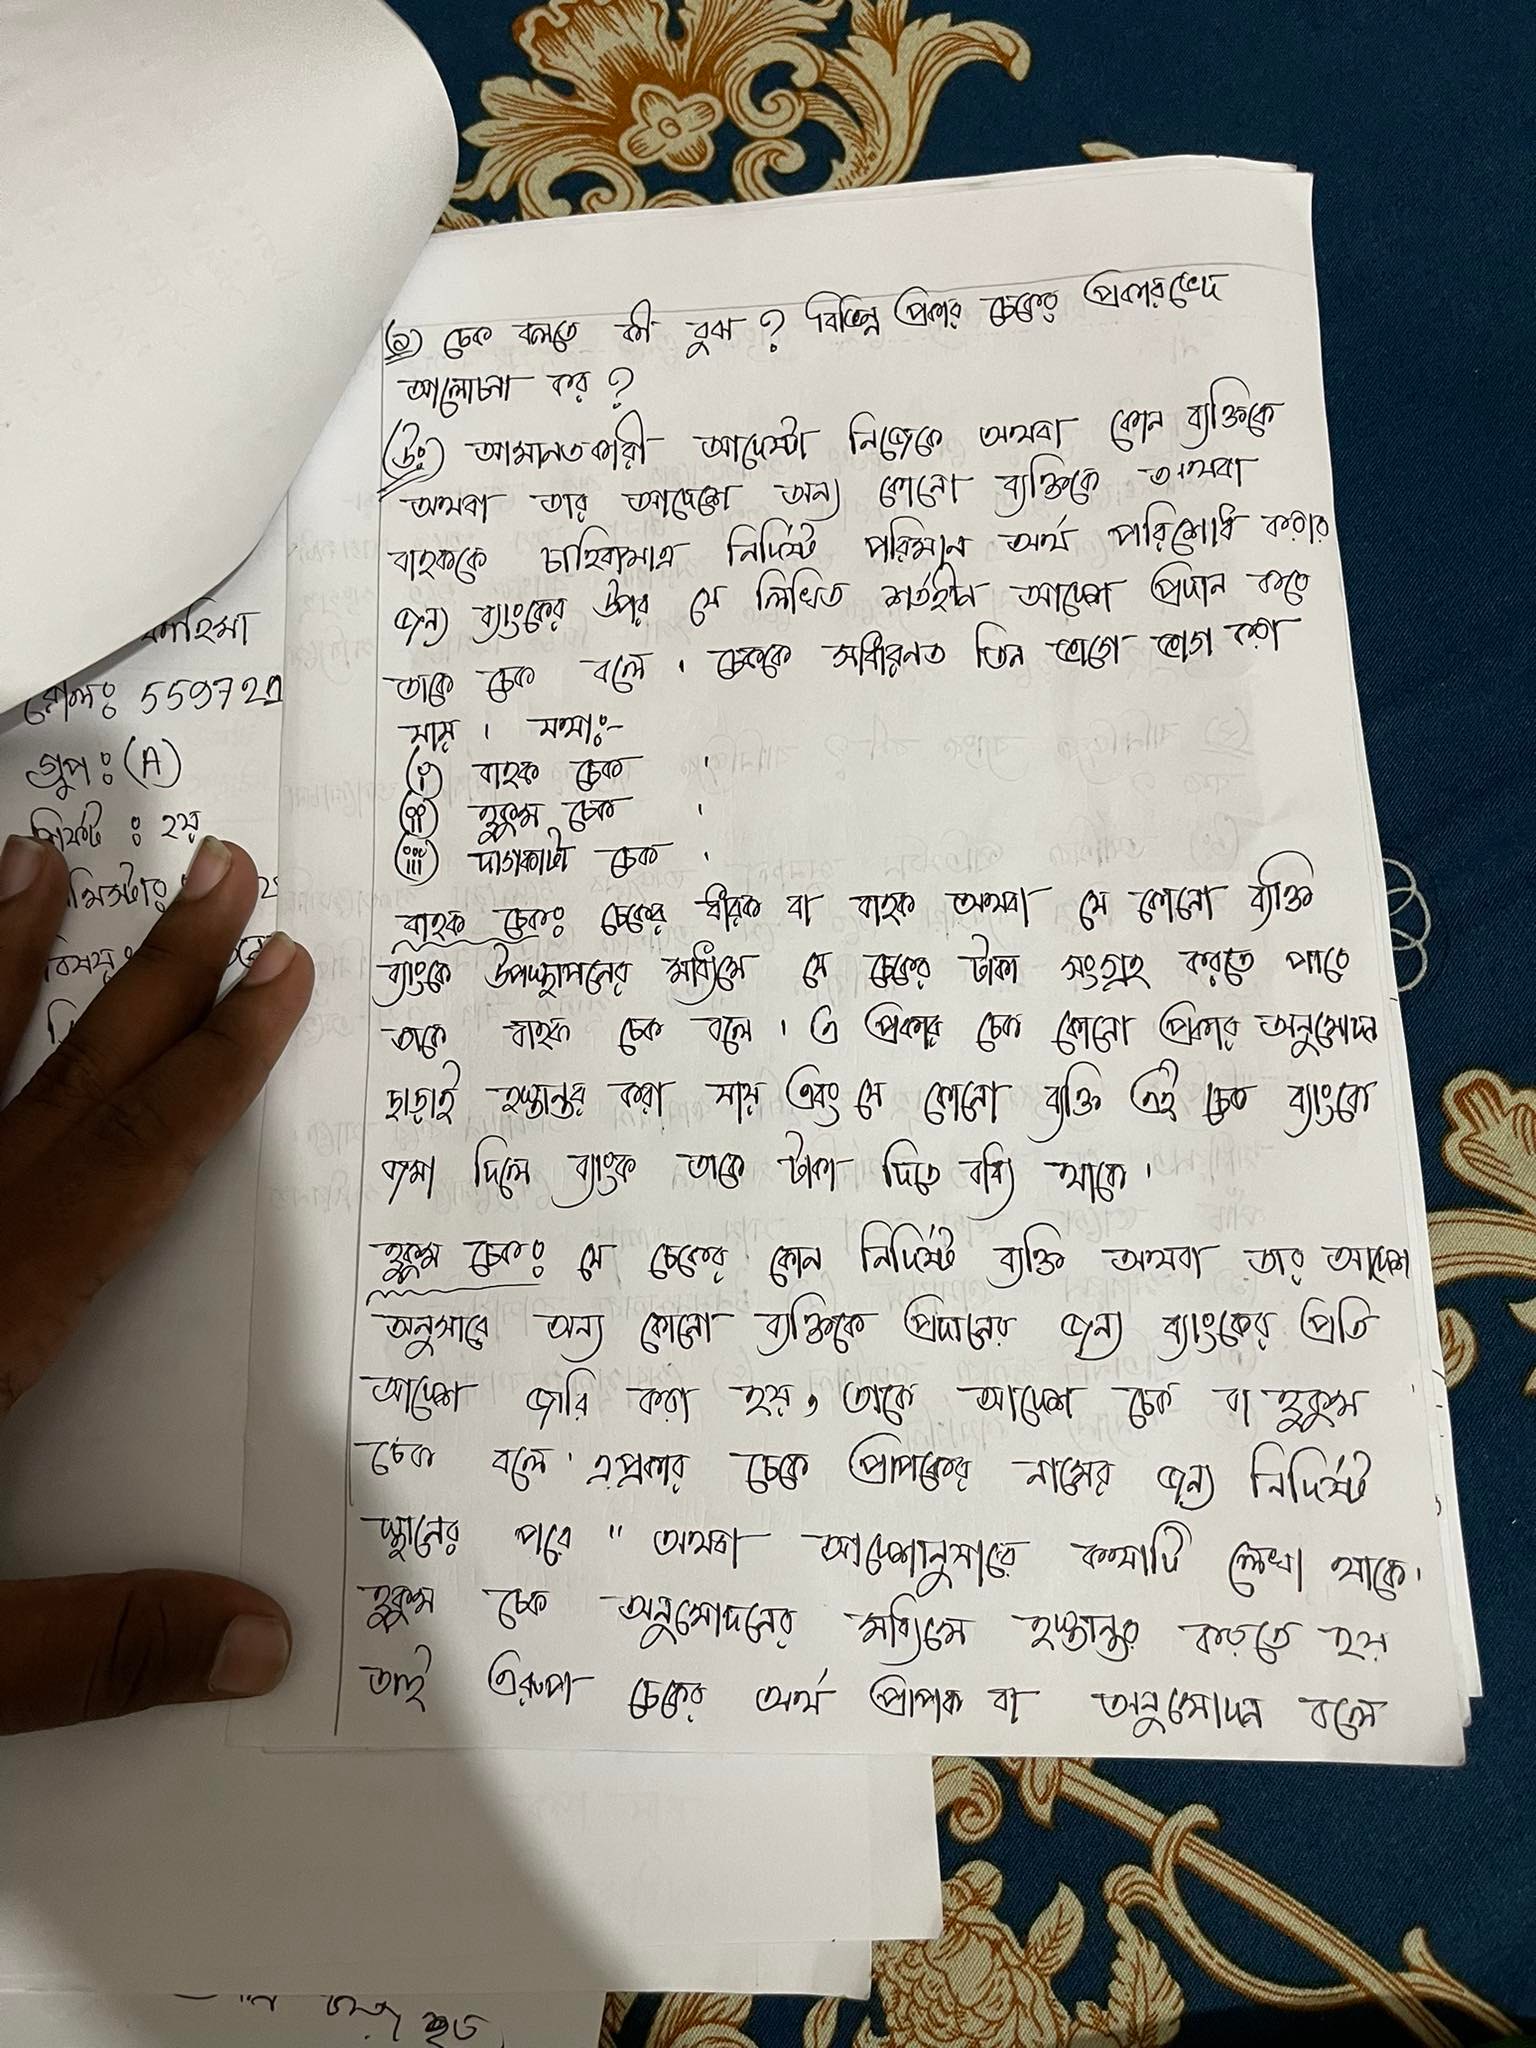 (১) চেক বলতে কী বুঝ ? বিভিন্ন প্রকার চেকের প্রকারভেদ
আলোচনা কর ?
(উঃ) আমানতকারী আদেষ্টা নিজেকে অথবা কোন ব্যক্তিকে
অথবা তার আদেশে অন্য কোনো ব্যক্তিকে অথবা
বাহককে চাহিবামাত্র নির্দিষ্ট পরিমান অর্থ পরিশোধ করার
জন্য ব্যাংকের উপর যে লিখিত শর্তহীন আদেশ প্রদান করে
তাকে চেক বলে । চেককে সাধারনত তিন ভাগে ভাগ করা
যায় । যথাঃ-
(i) বাহক চেক ।
(ii) হুকুম চেক ।
(iii) দাগকাটা চেক ।
বাহক চেকঃ চেকের ধারক বা বাহক অথবা যে কোনো ব্যক্তি
ব্যাংকে উপস্থাপনের মাধ্যমে যে চেকের টাকা সংগ্রহ করতে পারে
তাকে বাহক চেক বলে । এ প্রকার চেক কোনো প্রকার অনুমোদন
ছাড়াই হস্তান্তর করা যায় এবং যে কোনো ব্যক্তি এই চেক ব্যাংকে
জমা দিলে ব্যাংক তাকে টাকা দিতে বাধ্য থাকে ।
হুকুম চেকঃ যে চেকের কোন নির্দিষ্ট ব্যক্তি অথবা তার আদেশ
অনুসারে অন্য কোনো ব্যক্তিকে প্রদানের জন্য ব্যাংকের প্রতি
আদেশ জারি করা হয়, তাকে আদেশ চেক বা হুকুম
চেক বলে । এপ্রকার চেকে প্রাপকের নামের জন্য নির্দিষ্ট
স্থানের পরে " অথবা আদেশানুসারে কথাটি লেখা থাকে ।
হুকুম চেক অনুমোদনের মাধ্যমে হস্তান্তর করতে হয়
তাই এরূপ চেকের অর্থ প্রাপক বা অনুমোদন বলে
রোলঃ 559721
গ্রুপঃ (A)
শিফট : ২য়